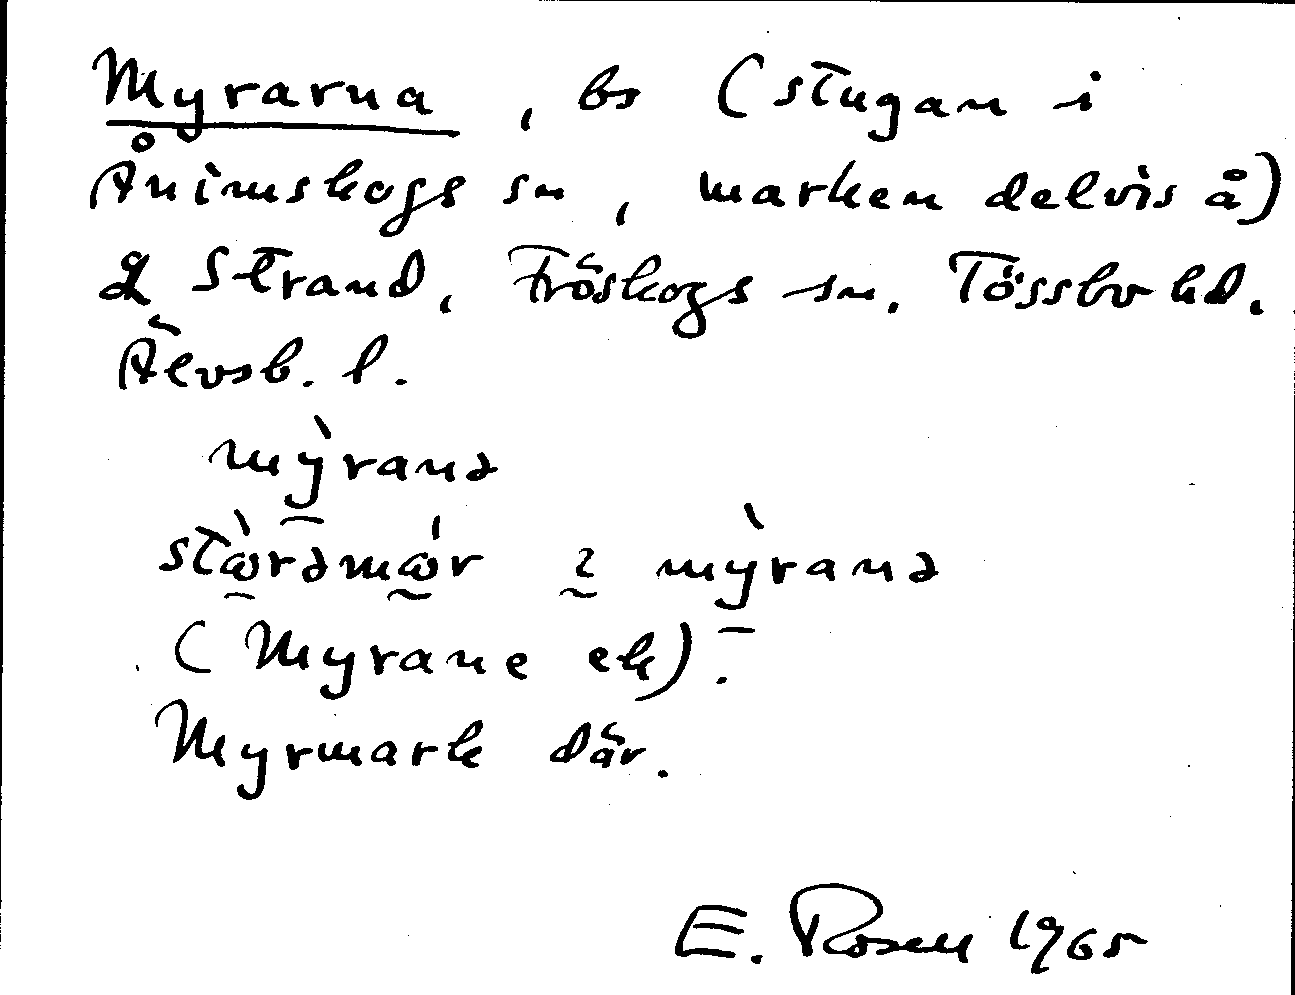 Myrarna, bs (stugan i
Ånimskogs sn, marken delvis å)
Strand, Fröskogs sn. Tössbo hd.
Älvsb. l.
mỳranə
i mỳranə
(Myrane ek).
Myrmark där.
E. Rosell 1965